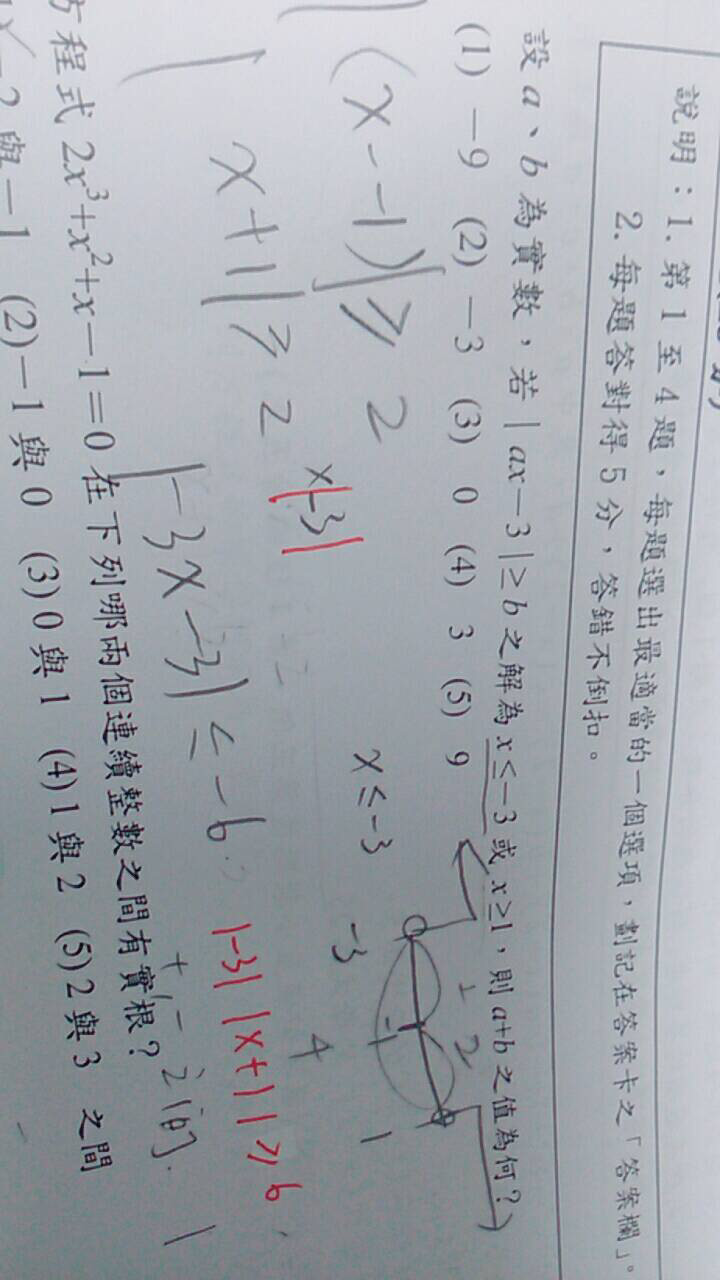 說明：1. 第 1 至 4 題，每題選出最適當的一個選項，劃記在答案卡之「答案欄」。
2. 每題答對得 5 分，答錯不倒扣。
設 a、b 為實數，若 | ax－3 | ≥ b 之解為 x ≤ －3 或 x ≥ 1，則 a+b 之值為何？
(1) －9 (2) －3 (3) 0 (4) 3 (5) 9
|(x-1)| ≥ 2
x|-3|
x ≤ -3
-3 -1 1
2
4
|x+1| ≥ 2
|-3x-3| ≤ -6
|-3| |x+1| ≥ 6
方程式 2x³+x²+x－1=0 在下列哪兩個連續整數之間有實根？
與－1 (2)－1 與 0 (3) 0 與 1 (4) 1 與 2 (5) 2 與 3 之間